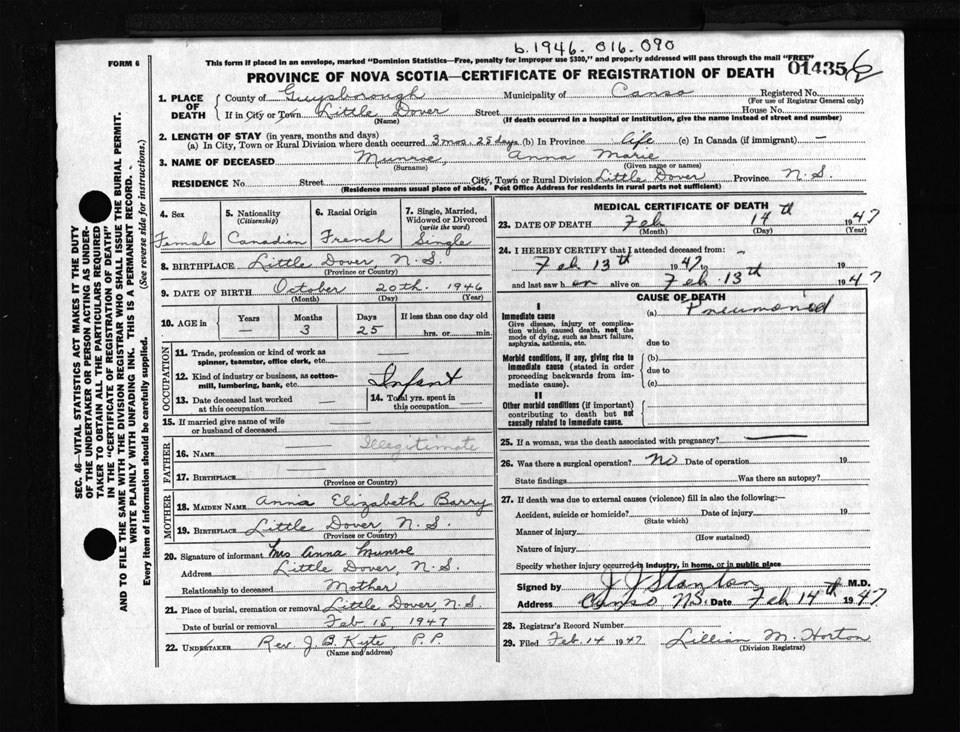 b. 1946. 016. 090
FORM 6
This form if placed in an envelope, marked "Dominion Statistics—Free, penalty for improper use $300," and properly addressed will pass through the mail "FREE"
PROVINCE OF NOVA SCOTIA—CERTIFICATE OF REGISTRATION OF DEATH 014356
1. PLACE OF DEATH
County of Guysborough Municipality of Canso Registered No.
(For use of Registrar General only)
If in City or Town Little Dover Street House No.
(Name) (If death occurred in a hospital or institution, give the name instead of street and number)
2. LENGTH OF STAY (in years, months and days)
(a) In City, Town or Rural Division where death occurred 3 mos. 25 days (b) In Province life (c) In Canada (if immigrant) —
3. NAME OF DECEASED Munroe, Anna Marie
(Surname) (Given name or names)
RESIDENCE No Street City, Town or Rural Division Little Dover Province N. S.
(Residence means usual place of abode. Post Office Address for residents in rural parts not sufficient)
4. Sex
Female
5. Nationality
(Citizenship)
Canadian
6. Racial Origin
French
7. Single, Married, Widowed or Divorced
(write the word)
Single
8. BIRTHPLACE Little Dover, N. S.
(Province or Country)
9. DATE OF BIRTH October 20th. 1946
(Month) (Day) (Year)
10. AGE in Years Months Days If less than one day old
— 3 25 hrs. or min.
OCCUPATION
11. Trade, profession or kind of work as spinner, teamster, office clerk, etc. —
12. Kind of industry or business, as cotton-mill, lumbering, bank, etc. Infant
13. Date deceased last worked at this occupation —
14. Total yrs. spent in this occupation —
15. If married give name of wife or husband of deceased —
FATHER
16. NAME Illegitimate
17. BIRTHPLACE —
(Province or Country)
MOTHER
18. MAIDEN NAME Annie Elizabeth Barry
19. BIRTHPLACE Little Dover, N. S.
(Province or Country)
20. Signature of informant Mrs Anna Munroe
Address Little Dover, N. S.
Relationship to deceased Mother
21. Place of burial, cremation or removal Little Dover, N. S.
Date of burial or removal Feb 15, 1947
22. UNDERTAKER Rev. J. B. Kyte, P. P.
(Name and address)
MEDICAL CERTIFICATE OF DEATH
23. DATE OF DEATH Feb 14th 1947
(Month) (Day) (Year)
24. I HEREBY CERTIFY that I attended deceased from —
Feb 13th 1947 to — 19
and last saw h er alive on Feb 13th 1947
CAUSE OF DEATH
I
Immediate cause
Give disease, injury or complication which caused death, not the mode of dying, such as heart failure, asphyxia, asthenia, etc.
(a) Pneumonia
due to
Morbid conditions, if any, giving rise to immediate cause (stated in order proceeding backwards from immediate cause).
(b)
due to
(c)
II
Other morbid conditions (if important) contributing to death but not causally related to immediate cause.
25. If a woman, was the death associated with pregnancy? —
26. Was there a surgical operation? No Date of operation 19
State findings Was there an autopsy?
27. If death was due to external causes (violence) fill in also the following:—
Accident, suicide or homicide? Date of injury 19
(State which)
Manner of injury
(How sustained)
Nature of injury
Specify whether injury occurred in industry, in home, or in public place
Signed by J J Stanton M.D.
Address Canso, N.S. Date Feb 14th 1947
28. Registrar's Record Number
29. Filed Feb. 14 1947 Lillian M. Horton
(Division Registrar)
SEC. 46—VITAL STATISTICS ACT MAKES IT THE DUTY
OF THE UNDERTAKER OR PERSON ACTING AS UNDER-
TAKER TO OBTAIN ALL THE PARTICULARS REQUIRED
IN THE "CERTIFICATE OF REGISTRATION OF DEATH"
AND TO FILE THE SAME WITH THE DIVISION REGISTRAR WHO SHALL ISSUE THE BURIAL PERMIT.
WRITE PLAINLY WITH UNFADING INK. THIS IS A PERMANENT RECORD.
Every item of information should be carefully supplied. (See reverse side for instructions.)